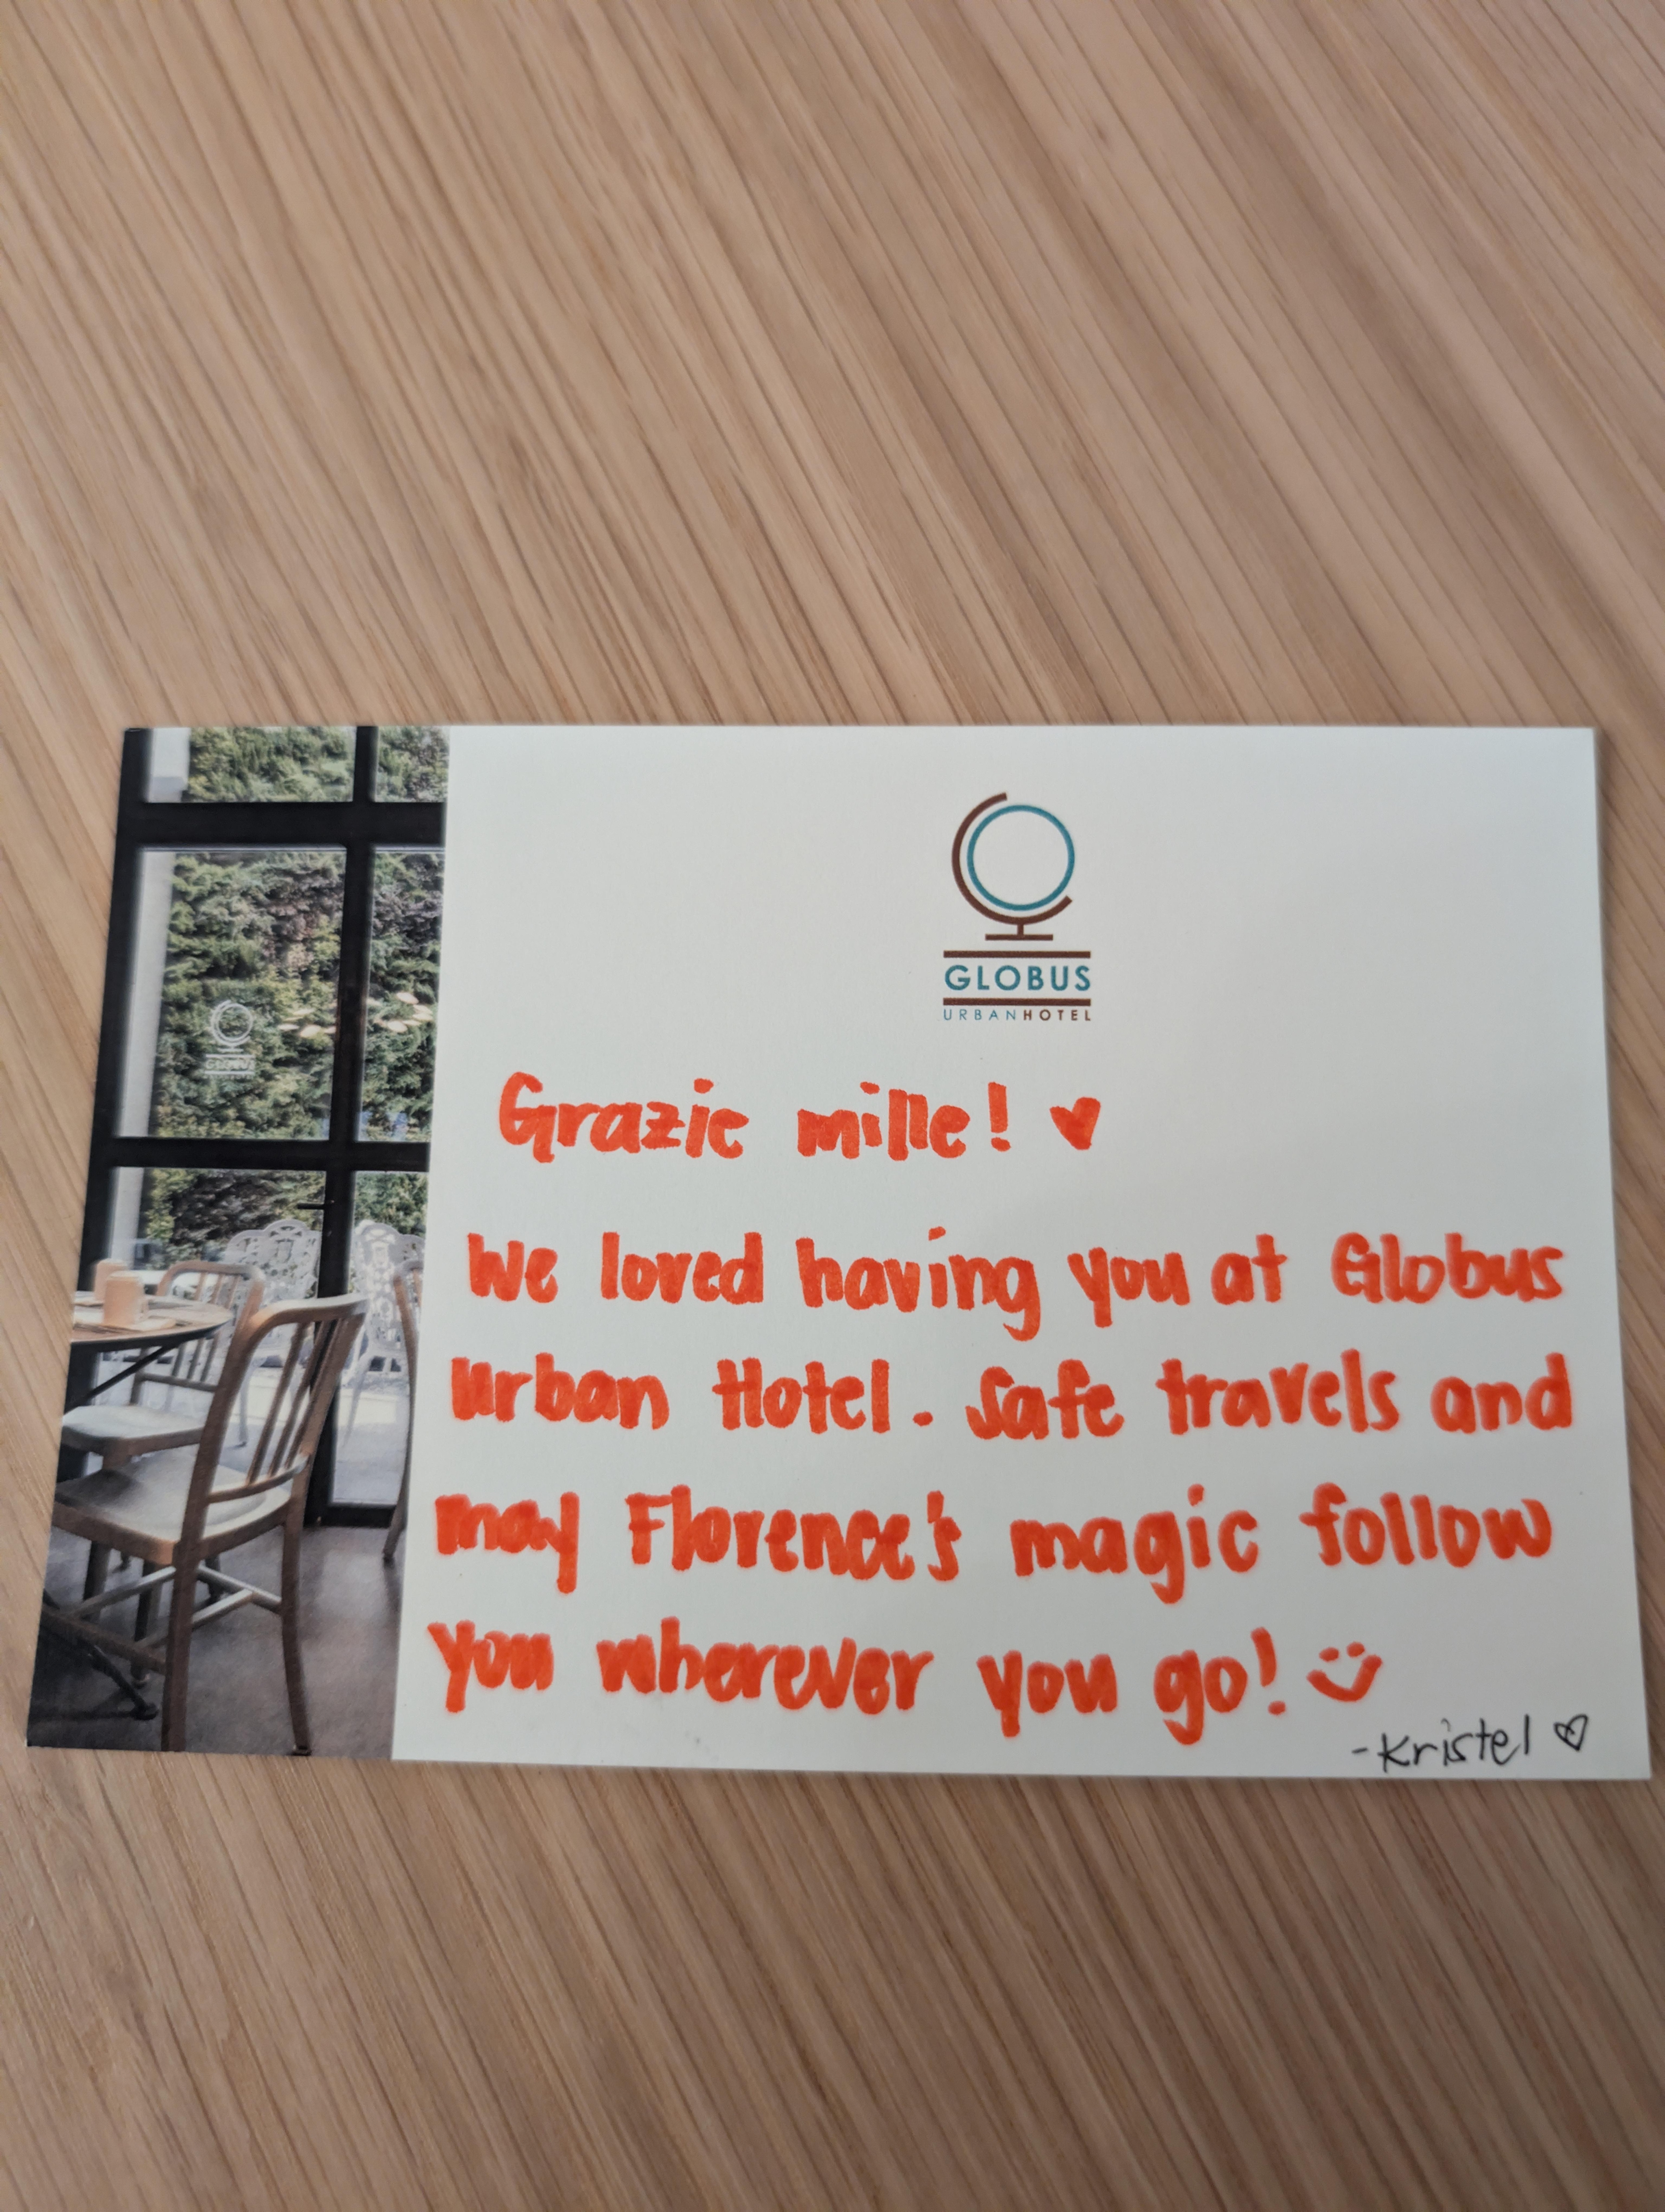 GLOBUS
URBANHOTEL
Grazie mille! ♥
We loved having you at Globus
Urban Hotel. Safe travels and
may Florence's magic follow
you wherever you go! :)
-Kristel ♡
GLOBUS